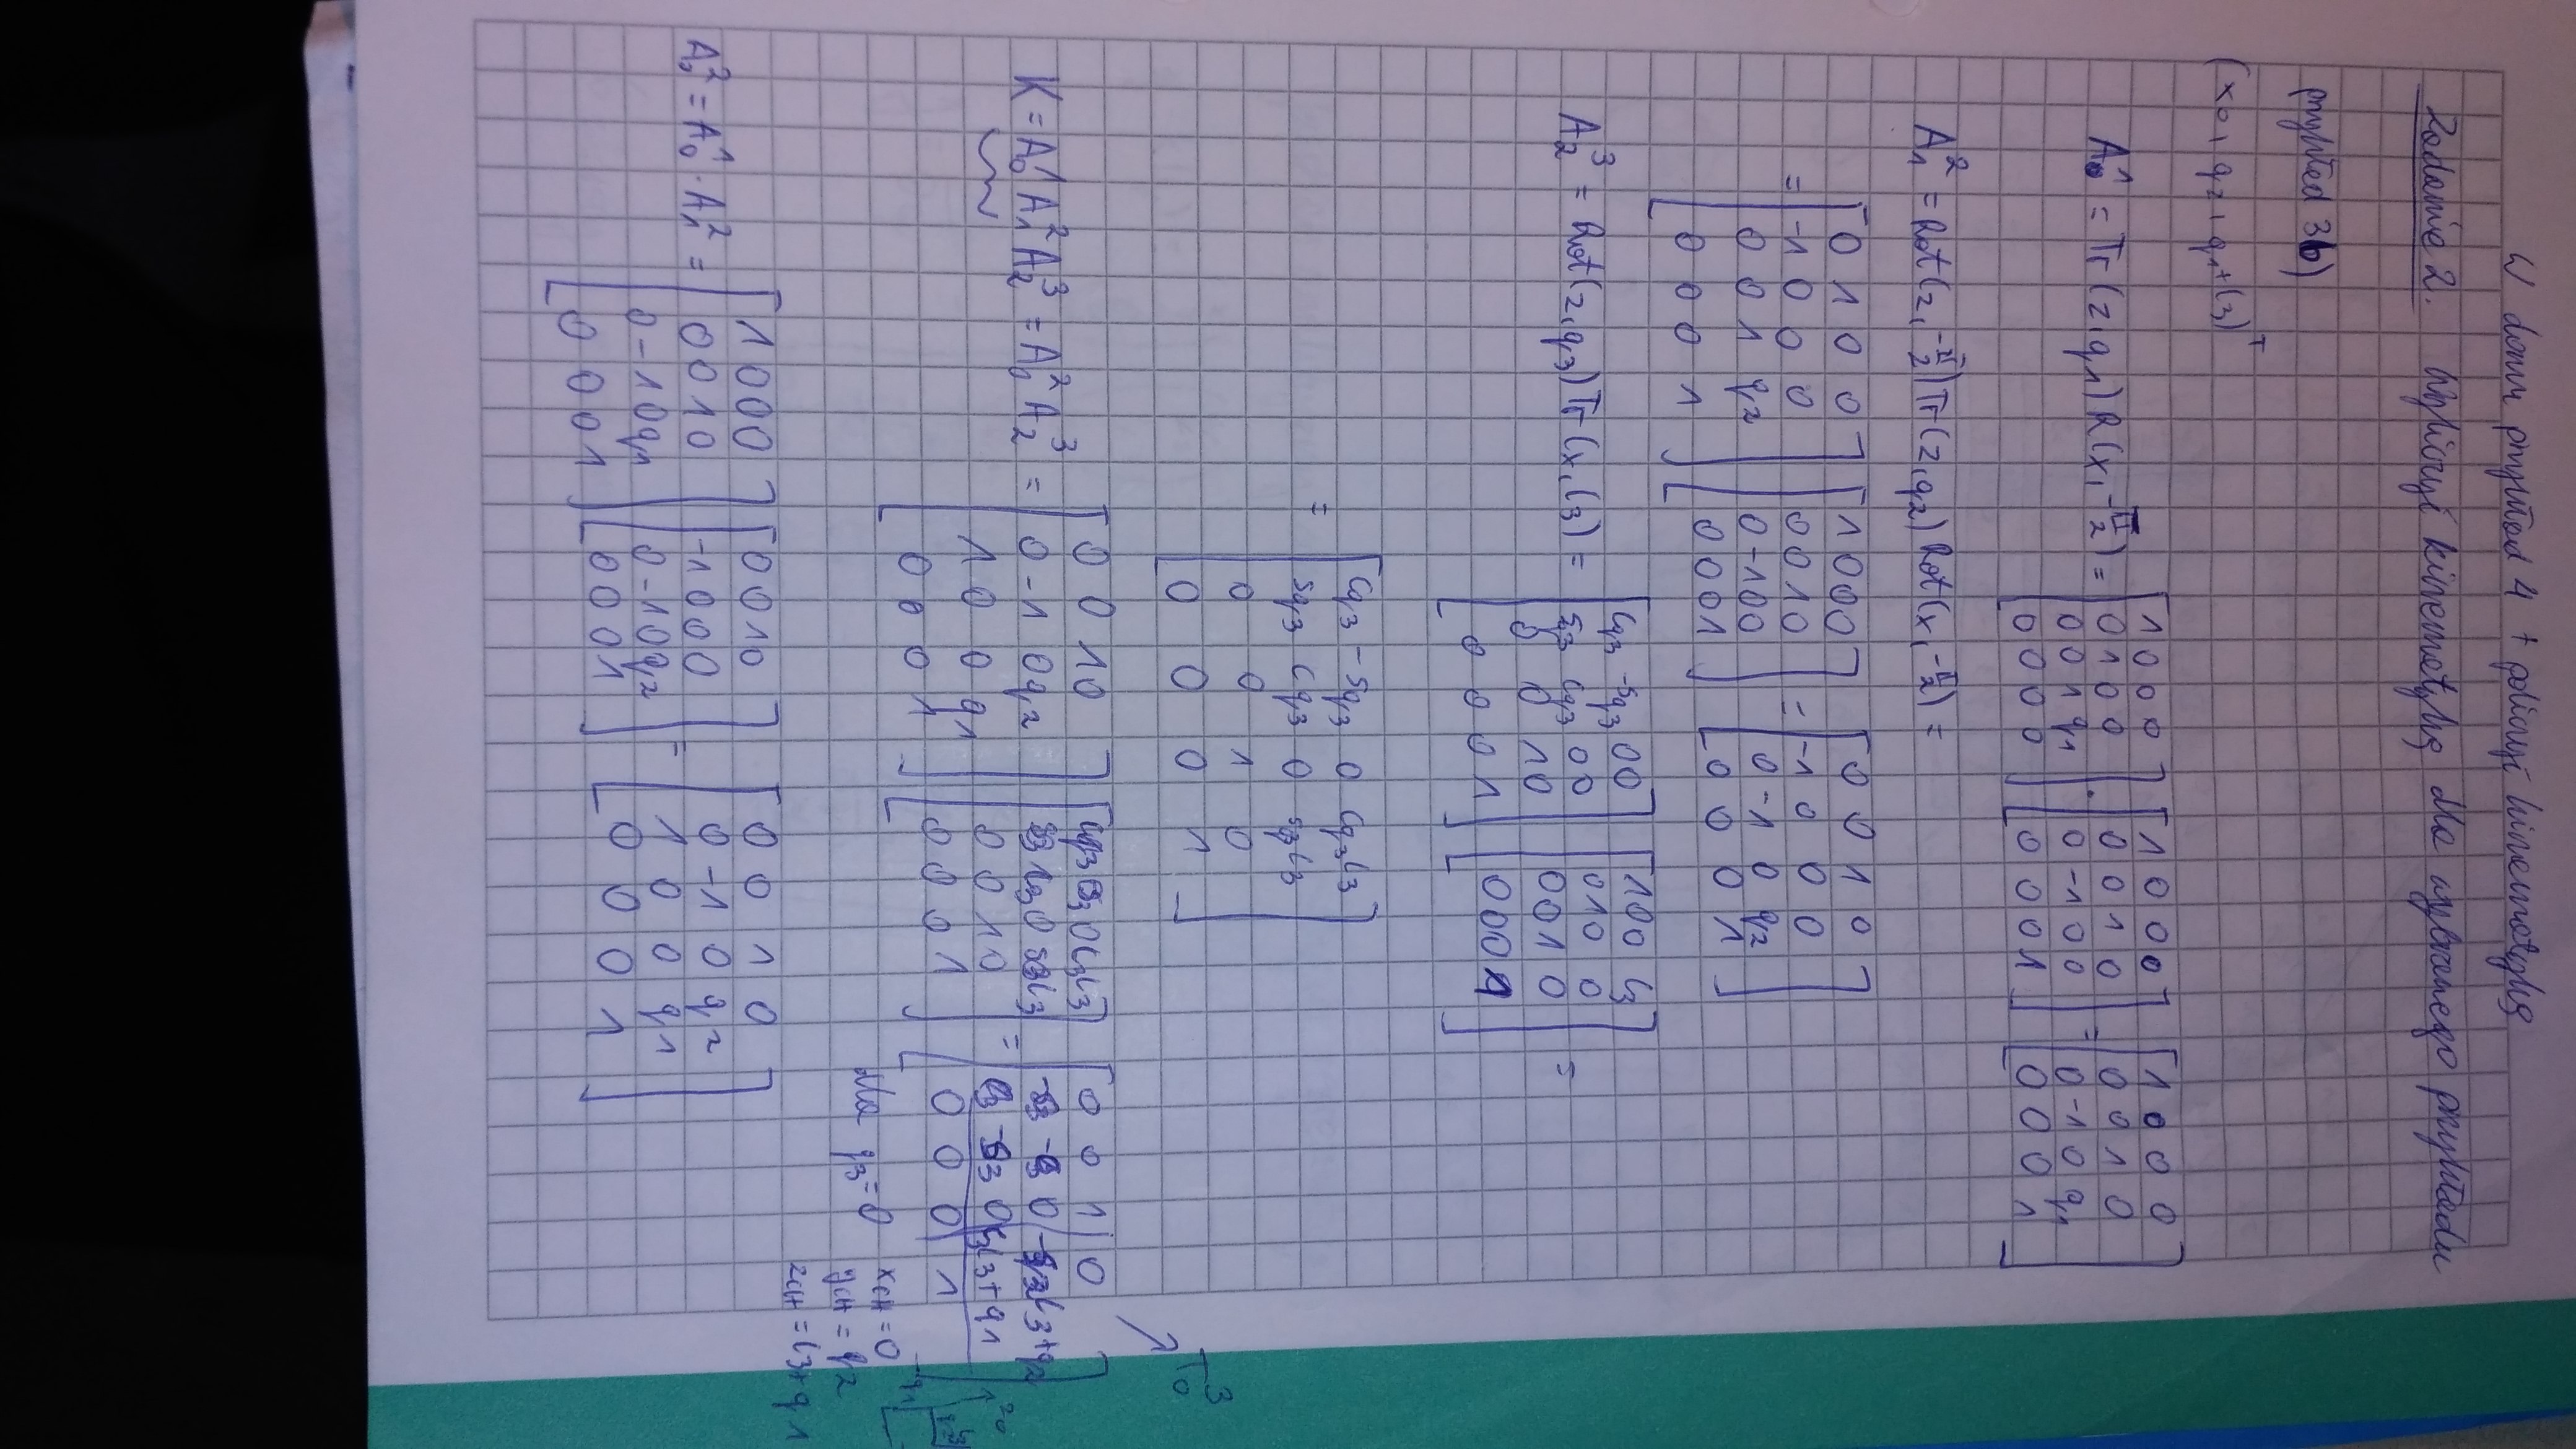 W domu przykład 4 + policzyć kinematykę
Zadanie 2. Wyliczyć kinematykę dla wybranego przykładu
przykład 3b)
(x0, q2, q1+l3)^T
A0^1 = Tr(z,q1)R(x,-π/2) = [1 0 0 0; 0 1 0 0; 0 0 1 q1; 0 0 0 0] · [1 0 0 0; 0 0 1 0; 0 -1 0 0; 0 0 0 1] = [1 0 0 0; 0 0 1 0; 0 -1 0 q1; 0 0 0 1]
A1^2 = Rot(z,-π/2)Tr(z,q2)Rot(x,-π/2) =
= [0 1 0 0; -1 0 0 0; 0 0 1 q2; 0 0 0 1] [1 0 0 0; 0 0 1 0; 0 -1 0 0; 0 0 0 1] = [0 0 1 0; -1 0 0 0; 0 -1 0 q2; 0 0 0 1]
A2^3 = Rot(z,q3)Tr(x,l3) = [Cq3 -Sq3 0 0; Sq3 Cq3 0 0; 0 0 1 0; 0 0 0 1] [1 0 0 l3; 0 1 0 0; 0 0 1 0; 0 0 0 1] =
= [Cq3 -Sq3 0 Cq3l3; Sq3 Cq3 0 Sq3l3; 0 0 1 0; 0 0 0 1]
T0^3
K = A0^1 A1^2 A2^3 = A0^2 A2^3 = [0 0 1 0; 0 -1 0 q2; 1 0 0 q1; 0 0 0 1] [C3 S3 0 C3l3; S3 C3 0 S3l3; 0 0 1 0; 0 0 0 1] = [0 0 1 0; -S3 -C3 0 -S3l3+q2; C3 -S3 0 C3l3+q1; 0 0 0 1]
dla q3=0
xCH = 0
yCH = q2
zCH = l3+q1
A0^2 = A0^1 · A1^2 = [1 0 0 0; 0 0 1 0; 0 -1 0 q1; 0 0 0 1] [0 0 1 0; -1 0 0 0; 0 -1 0 q2; 0 0 0 1] = [0 0 1 0; 0 -1 0 q2; 1 0 0 q1; 0 0 0 1]